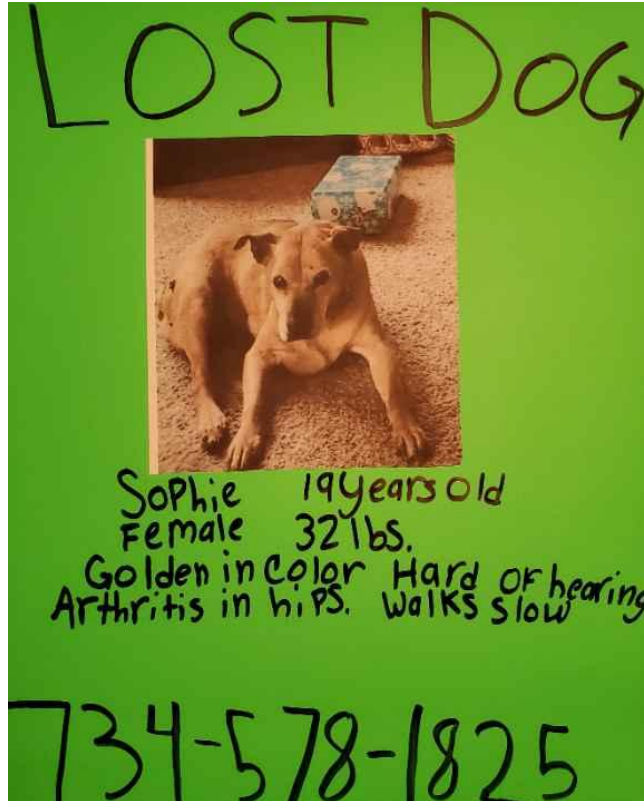 LOST DOG
Sophie 19 years old
Female 32 lbs.
Golden in color Hard of hearing
Arthritis in hips. Walks slow
734-578-1825